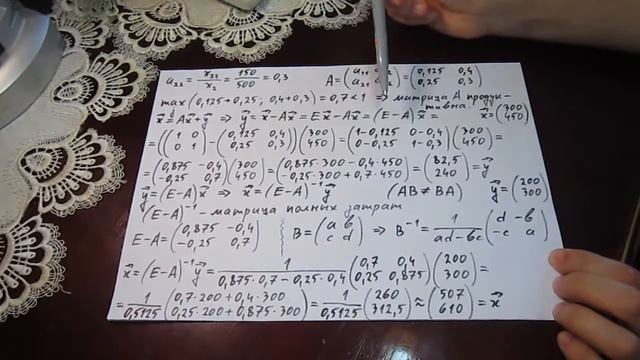 a₂₂ = x₂₂/x₂ = 150/500 = 0,3 A = (a₁₁ a₂ a₂₁ a₂) = (0,125 0,4 0,25 0,3)
max (0,125+0,25; 0,4+0,3) = 0,7 < 1 ⇒ матрица A продуктивна.
x⃗ = Ax⃗ + y⃗ ⇒ y⃗ = x⃗ − Ax⃗ = Ex⃗ − Ax⃗ = (E−A)x⃗ = x⃗ = (300 450)
= ((1 0 0 1) − (0,125 0,4 0,25 0,3))(300 450) = (1−0,125 0−0,4 0−0,25 1−0,3)(300 450) =
= (0,875 −0,4 −0,25 0,7)(300 450) = (0,875·300−0,4·450 −0,25·300+0,7·450) = (82,5 240) = y⃗
y⃗ = (E−A)x⃗ ⇒ x⃗ = (E−A)⁻¹y⃗ (AB≠BA) y⃗ = (200 300)
(E−A)⁻¹ - матрица полных затрат
E−A = (0,875 −0,4 −0,25 0,7) B = (a b c d) ⇒ B⁻¹ = 1/(ad−bc) (d −b −c a)
x⃗ = (E−A)⁻¹y⃗ = 1/(0,875·0,7−0,25·0,4) (0,7 0,4 0,25 0,875)(200 300) =
= 1/0,5125 (0,7·200+0,4·300 0,25·200+0,875·300) = 1/0,5125 (260 312,5) ≈ (507 610) = x⃗